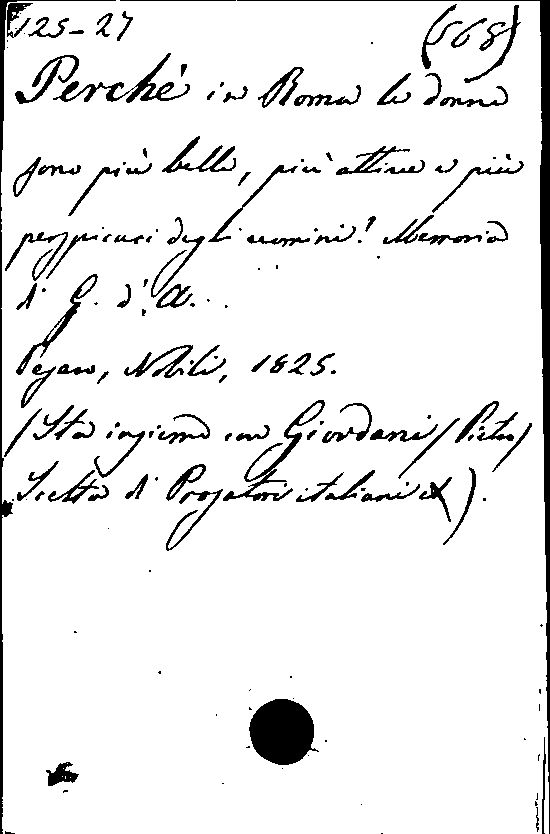 125-27 (568)
Perché in Roma le donne
sono più belle, più attive e più
perspicaci degli uomini? Memoria
di G. d'. A...
Pesaro, Nobili, 1825.
(Sta insieme con Giordani (Pietro)
Scelta di Prosatori italiani ec).